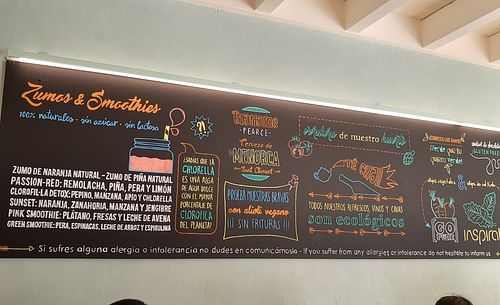 Zumos & Smoothies
100% naturales · sin azúcar · sin lactosa
ZUMO DE NARANJA NATURAL - ZUMO DE PIÑA NATURAL
PASSION-RED: REMOLACHA, PIÑA, PERA Y LIMÓN
CLOROFILA DETOX: PEPINO, MANZANA, APIO Y CHLORELLA
SUNSET: NARANJA, ZANAHORIA, MANZANA Y JENGIBRE
PINK SMOOTHIE: PLÁTANO, FRESAS Y LECHE DE AVENA
GREEN SMOOTHIE: PERA, ESPINACAS, LECHE DE ARROZ Y ESPIRULINA
¿SABÍAS QUE LA
CHLORELLA
ES UNA ALGA
DE AGUA DULCE
CON EL MAYOR
PORCENTAJE DE
CLOROFILA
DEL PLANETA?
PEARCE
Cerveza de
MENORCA
Sant Climent
PRUEBA NUESTRAS BRAVAS
con alioli vegano
!!! SIN FRITURAS !!!
de nuestro huerto
TODOS NUESTROS REFRESCOS, VINOS Y CAVAS
son ecológicos
GLUTEN FREE
GO
inspira
Si sufres alguna alergia o intolerancia no dudes en comunicárnoslo - If you suffer from any allergies or intolerance do not hesitate to inform us